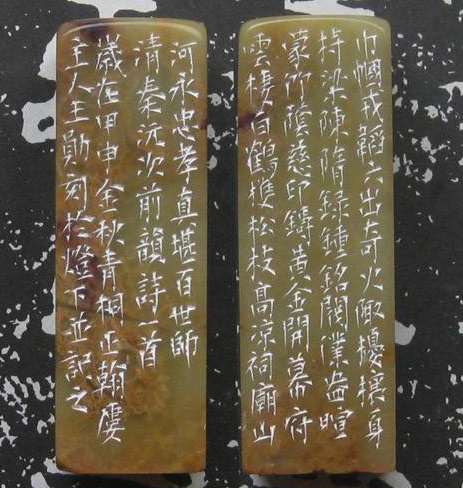 巾幗戎韜六出奇火陬擾攘身
持梁陳隋錄鍾銘閥益暄
蒙蔭慈印鑄黄金開幕府
雲棲白鶴松枝高凉祠廟山
河永忠孝真堪百世師
清秦沅次前韻詩一首
歲在甲申金秋青桐正翰廔
主人王勛刻於燈下並記之